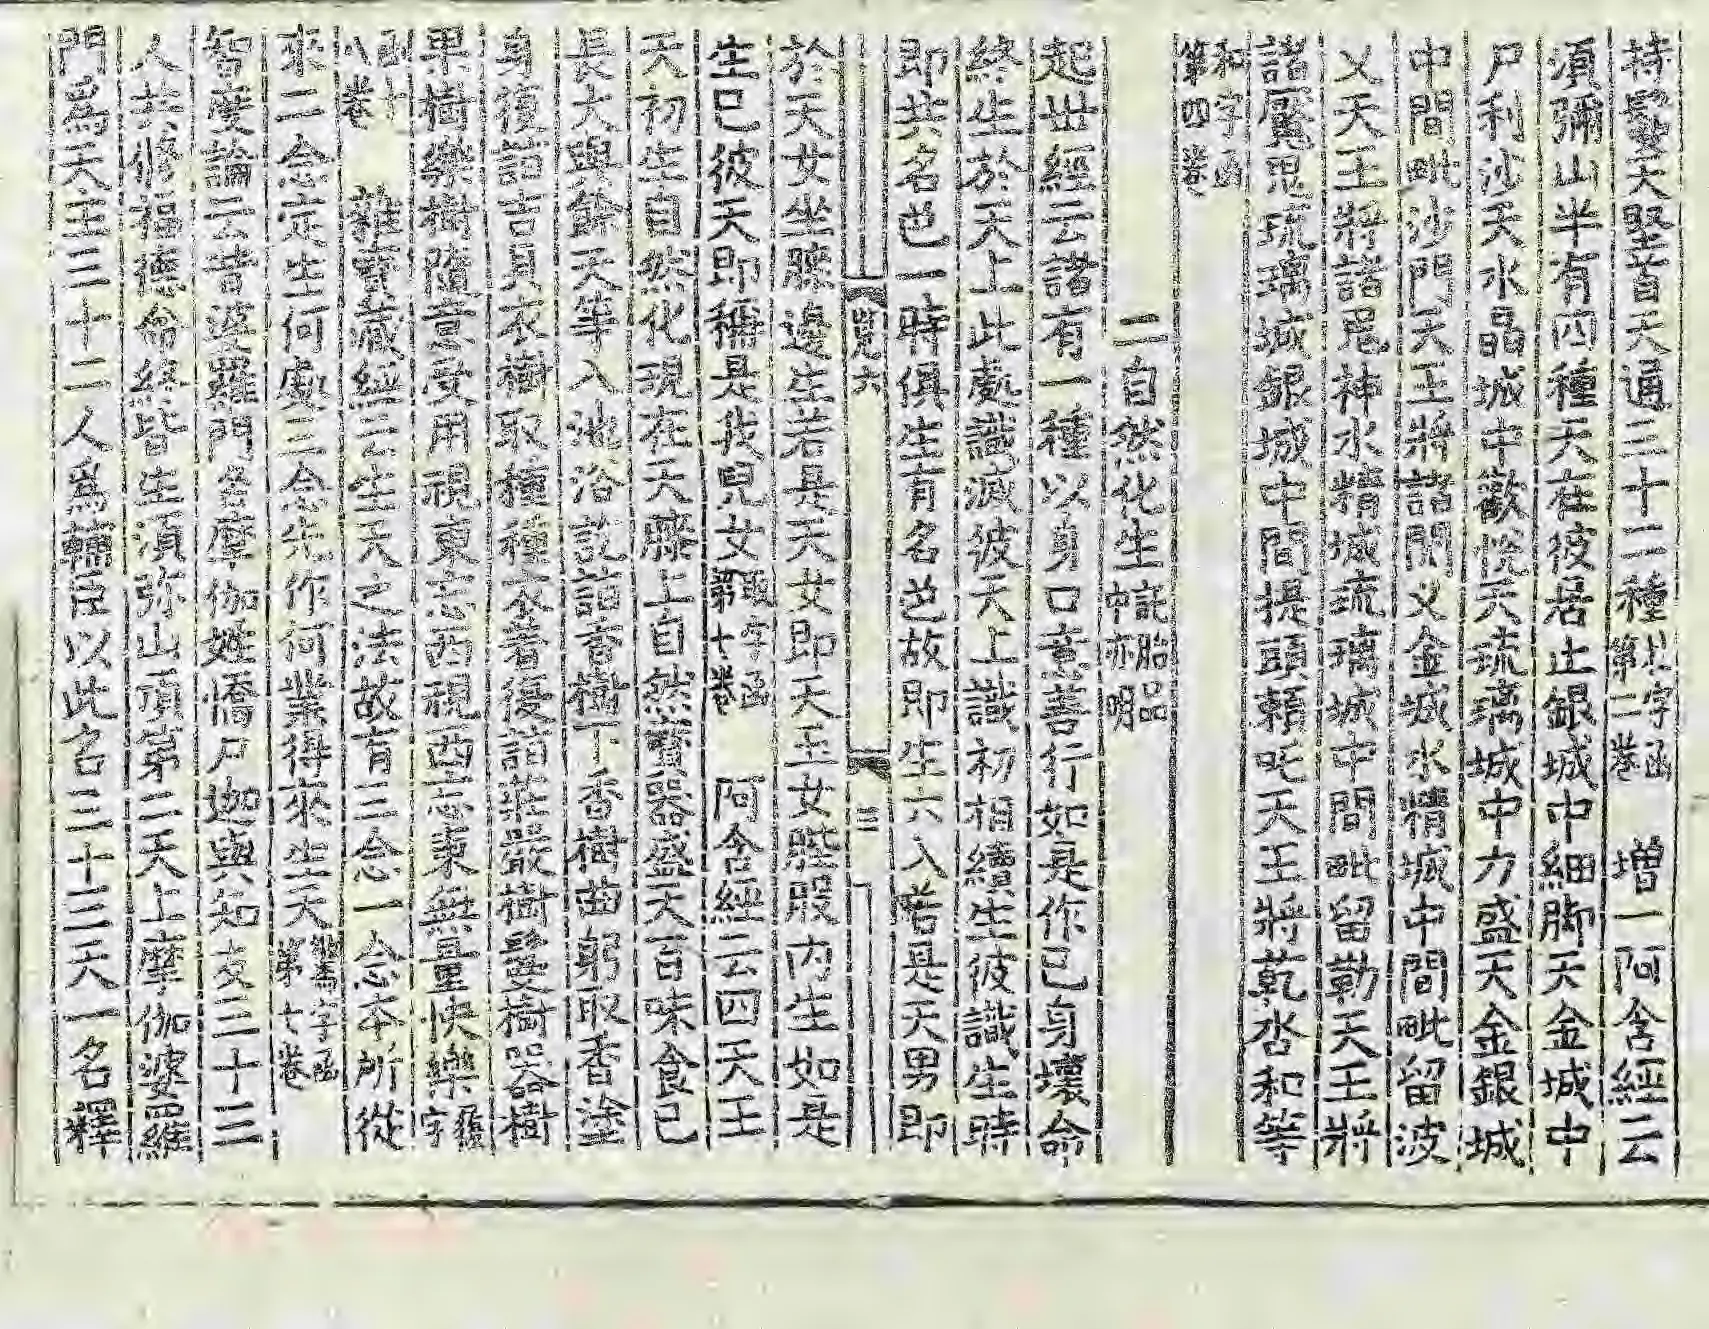 持鬘天堅首天通三十二種共字函第二卷　增一阿含經云
須彌山半有四種天在彼居止銀城中細脚天金城中
尸利沙天水晶城中歡悅天琉璃城中力盛天金銀城
中間毗沙門天王將諸閱叉金城水精城中間毗留波
叉天王將諸鬼神水精城琉璃城中間毗留勒天王將
諸魘鬼琉璃城銀城中間提頭賴吒天王將乾沓和等
和字函第四卷
二自然化生託胎品卒亦明
起世經云諸有一種以身口意善行如是作已身壞命
終生於天上此處識滅彼天上識初相續生彼識生時
即共名色一時俱生有名色故即生六入若是天男即
六　三
於天女坐膝邊生若是天女即天王女髀股内生如是
生已彼天即稱是我兒女字函第七卷　阿含經云四天王
天初生自然化現在天膝上自然寶器盛天百味食已
長大與餘天等入池浴說詣香樹下香樹曲躬取香塗
身復詣吉貝衣樹取種種衣著復詣莊嚴樹鬘樹器樹
果樹樂樹隨意受用視東忘西視西忘東無量快樂字
函十八卷　雜寶藏經云生天之法故有三念一念本所從
來二念定生何處三念先作何業得來生天字函第七卷
智度論云昔婆羅門名摩伽姓憍尸迦與知友三十三
人共修福德命終皆生須弥山頂第二天上摩伽婆羅
門為天主三十二人為輔臣以此名三十三天一名釋